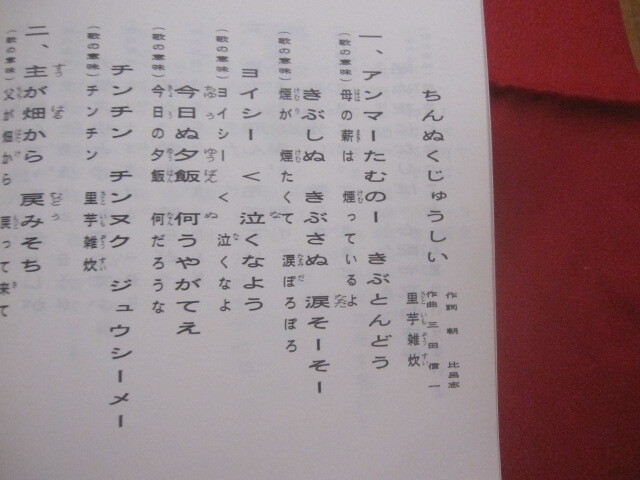 ちんぬくじゅうしい
里芋雑炊
作詞 朝 比呂志
作曲 三田信一
一、アンマーたむのー きぶとんどう
(歌の意味) 母の薪は 煙っているよ
きぶしぬ きぶさぬ 涙そーそー
(歌の意味) 煙が 煙たくて 涙ぽろぽろ
ヨイシー く 泣くなよう
(歌の意味) ヨイシー く 泣くなよ
今日ぬ夕飯 何うやがてえ
(歌の意味) 今日の夕飯 何だろうな
チンチン チンヌク ジュウシーメー
(歌の意味) チンチン 里芋雑炊
二、主が畑から 戻みそち
(歌の意味) 父が畑から 戻って来て